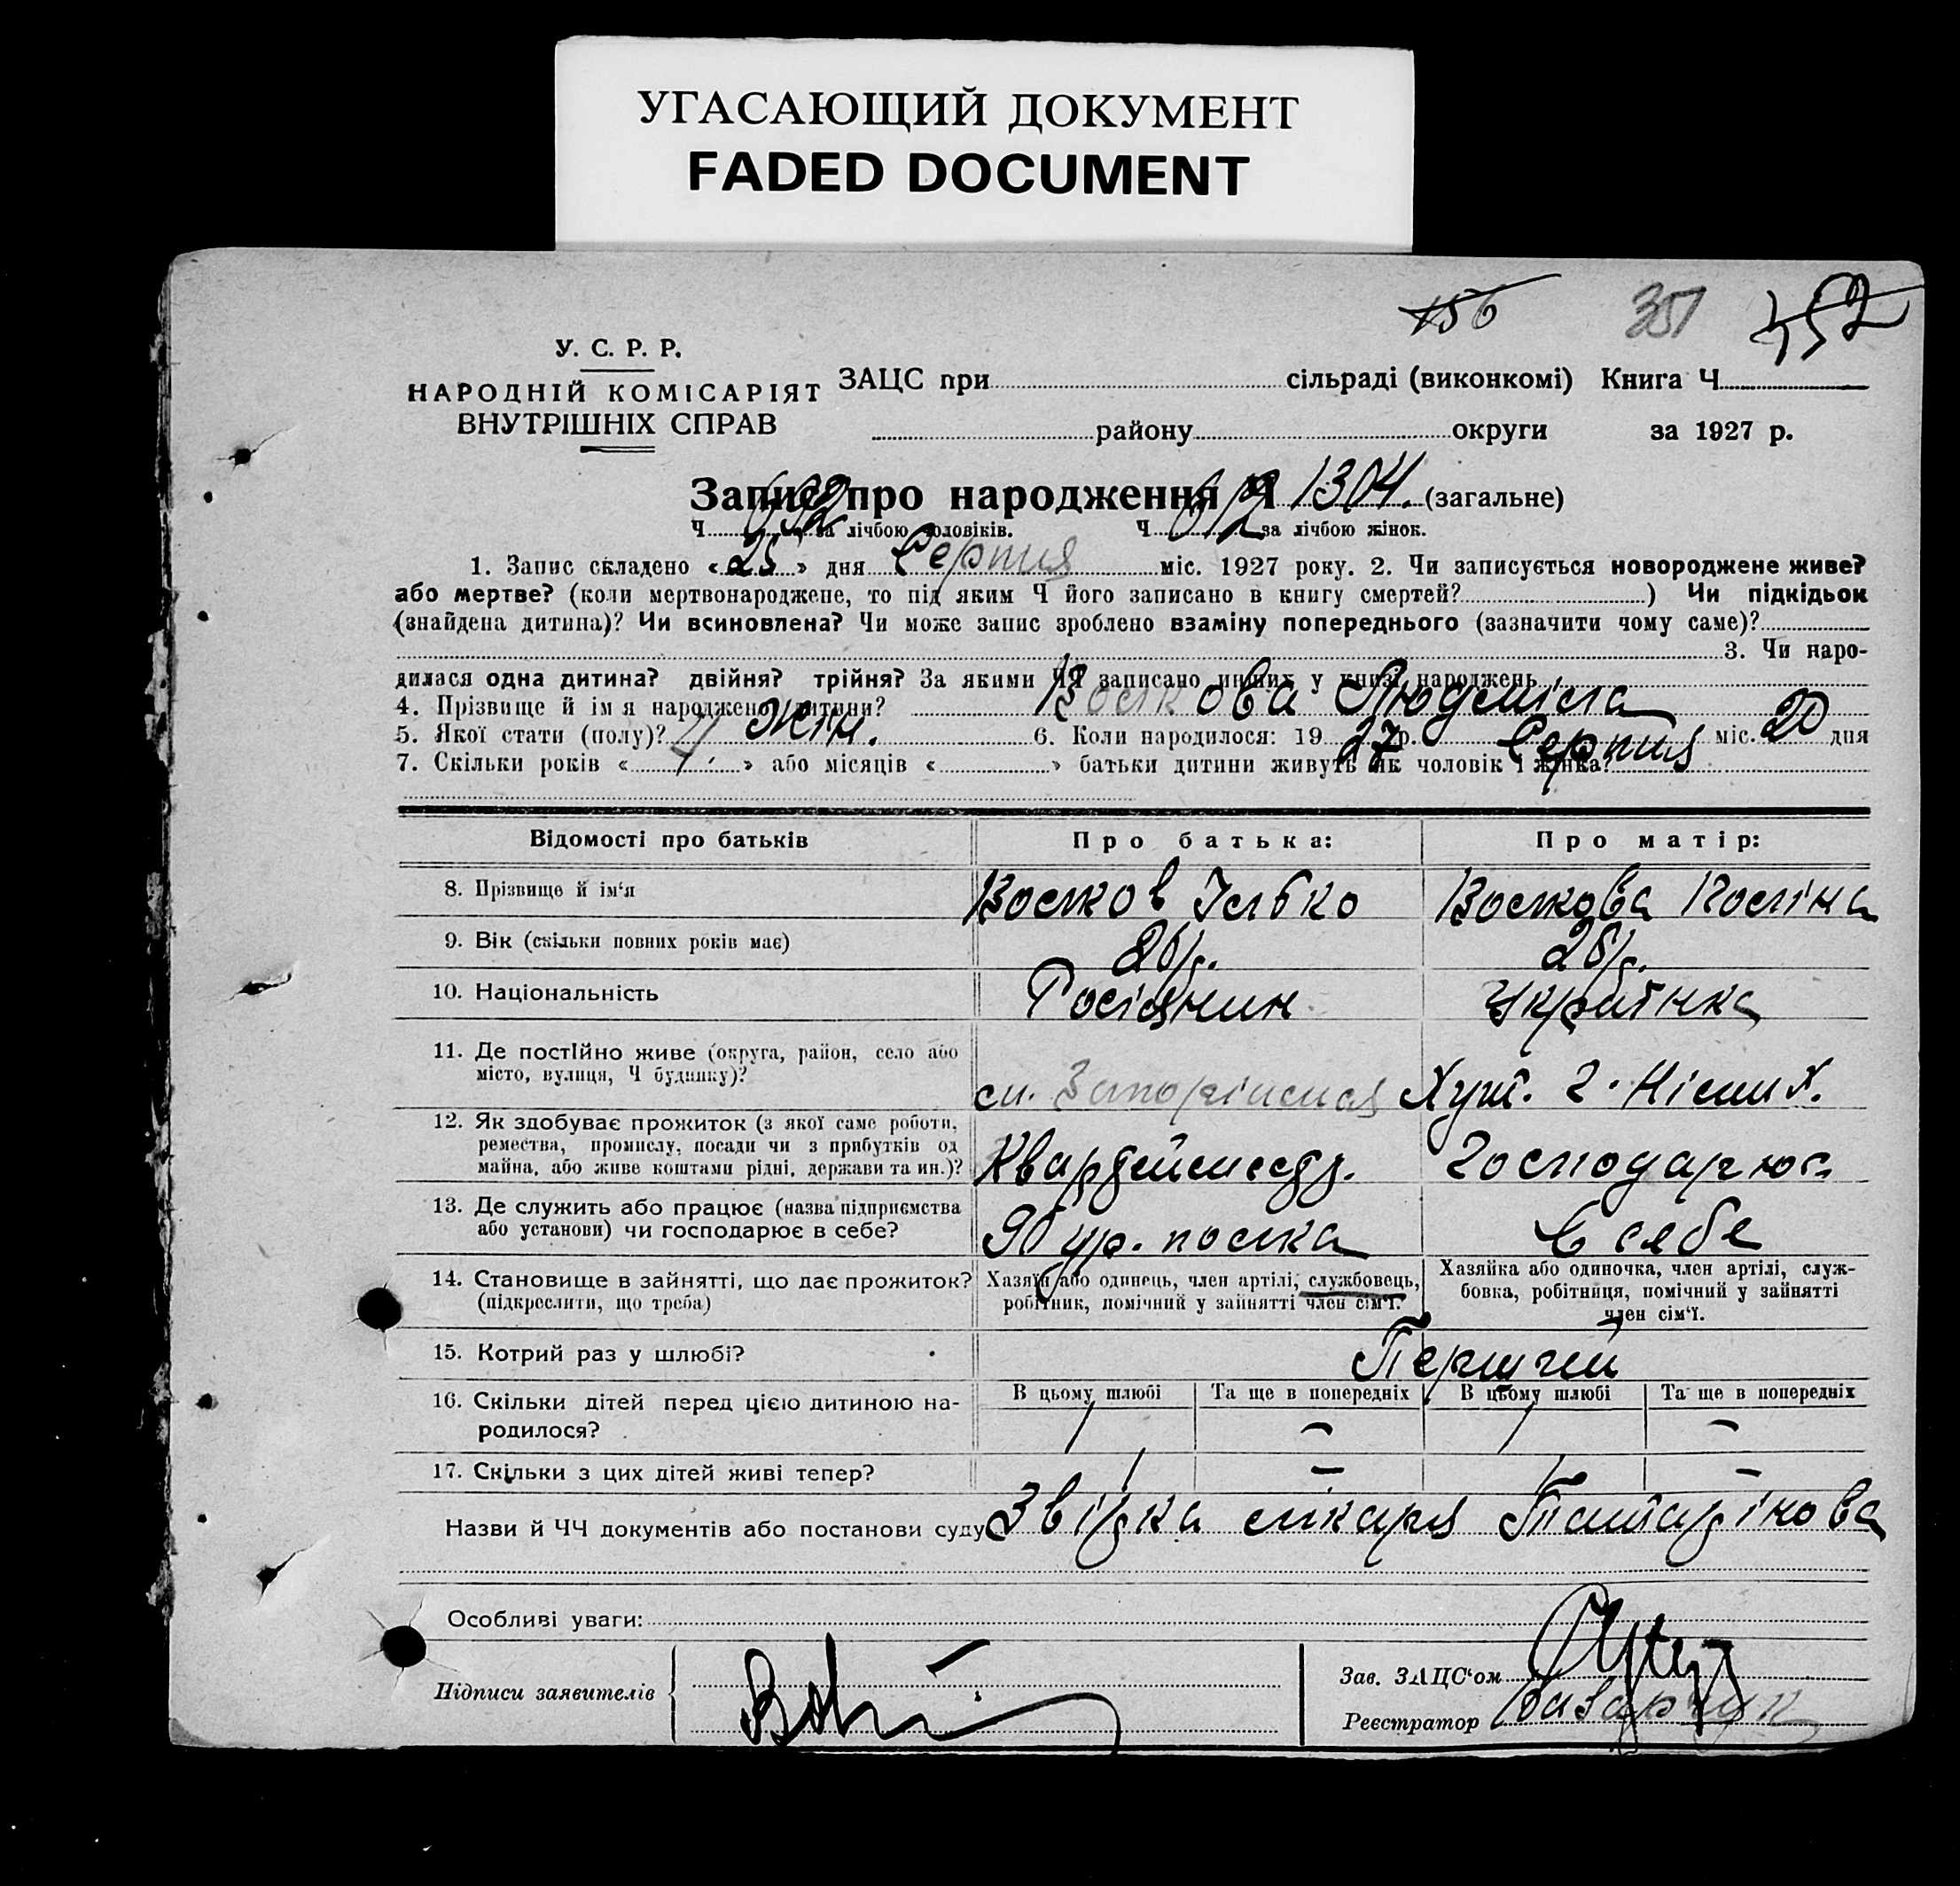 УГАСАЮЩИЙ ДОКУМЕНТ
FADED DOCUMENT
156 351 352
У. С. Р. Р.
НАРОДНІЙ КОМІСАРІЯТ
ВНУТРІШНІХ СПРАВ
ЗАЦС при сільраді (виконкомі) Книга Ч
району округи за 1927 р.
Запис про народження Ч 1304. (загальне)
Ч 692 за лічбою чоловіків. Ч 612 за лічбою жінок.
1. Запис складено « 25 » дня Серпня міс. 1927 року. 2. Чи записується новороджене живе?
або мертве? (коли мертвонароджене, то під яким Ч його записано в книгу смертей? ) Чи підкідьок
(знайдена дитина)? Чи всиновлена? Чи може запис зроблено взаміну попереднього (зазначити чому саме)?
3. Чи наро-
дилася одна дитина? двійня? трійня? За якими ЧЧ записано инших у книзі народжень
4. Прізвище й ім'я народженої дитини? Волкова Людміла
5. Якої стати (полу)? Жін. 6. Коли народилося: 19 27 р. Серпня міс. 20 дня
7. Скільки років « 4. » або місяців « » батьки дитини живуть як чоловік і жінка?
Відомості про батьків Про батька: Про матір:
8. Прізвище й ім'я Волков Ілько Волкова Поліна
9. Вік (скільки повних років має) 26 р. 26 р.
10. Національність Росіянин Українка
11. Де постійно живе (округа, район, село або
місто, вулиця, Ч будинку)?
12. Як здобуває прожиток (з якої саме роботи,
ремества, промислу, посади чи з прибутків од
майна, або живе коштами рідні, держави та ин.)?
13. Де служить або працює (назва підприємства
або установи) чи господарює в себе? 90 полка в себе
14. Становище в зайнятті, що дає прожиток?
(підкреслити, що треба)
Хазяїн або одинець, член артілі, службовець,
робітник, помічний у зайнятті член сім'ї.
Хазяйка або одиночка, член артілі, служ-
бовка, робітниця, помічний у зайнятті
член сім'ї.
15. Котрий раз у шлюбі? Перший
16. Скільки дітей перед цією дитиною на-
родилося?
В цьому шлюбі Та ще в попередніх В цьому шлюбі Та ще в попередніх
1 – 1 –
17. Скільки з цих дітей живі тепер? 1 – 1 –
Назви й ЧЧ документів або постанови суду Звірка лікаря Татарінова
Особливі уваги:
Підписи заявителів
Зав. ЗАЦС'ом
Реєстратор